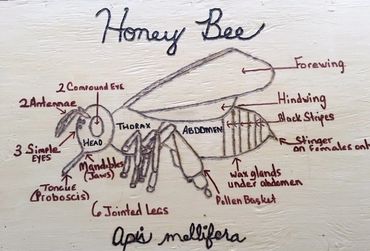 Honey Bee
Forewing
2 Compound Eye
2 Antennae
Hindwing
Black Stripes
THORAX
ABDOMEN
HEAD
3 Simple
Eyes
Stinger
on Females only
Mandibles
(Jaws)
Wax glands
under abdomen
Tongue
(Proboscis)
Pollen Basket
6 Jointed Legs
Apis mellifera